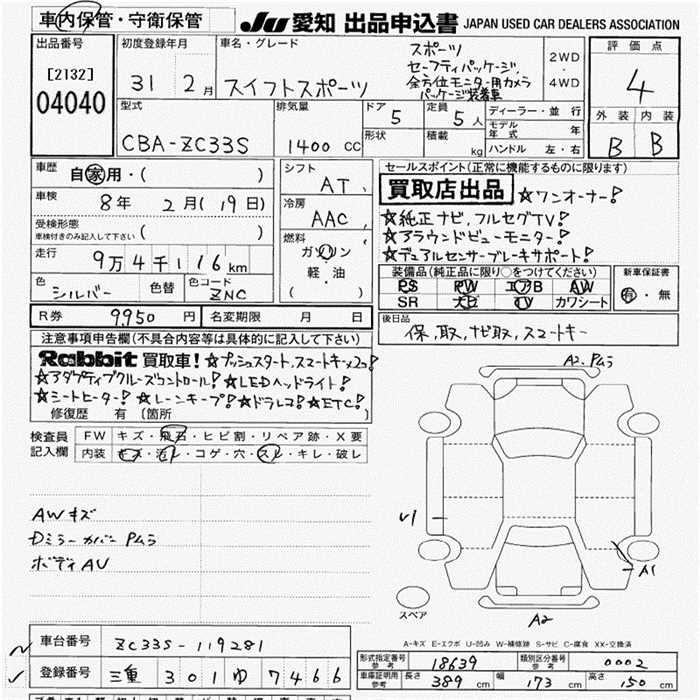 車内保管・守衛保管 JU 愛知 出品申込書 JAPAN USED CAR DEALERS ASSOCIATION
出品番号
[2132]
04040
初度登録年月
31 2月
車名・グレード
スイフトスポーツ
スポーツ
セーフティパッケージ、
全方位モニター用カメラ
パッケージ装着車
2WD
4WD
評価点
4
外装 内装
B B
型式
CBA-ZC33S
排気量
1400 CC
ドア 5
形状
定員 5人
積載 kg
ディーラー・並行
モデル年式 年
ハンドル 左・右
車歴
自家用・( )
車検
8年 2月(19日)
受検形態
車検付きのみ記入して下さい ( )
走行
9万4千116km
色
シルバー
色替
色コード
ZNC
シフト
AT
冷房
AAC
燃料
ガソリン
軽・油
( )
R券 9,950円 名変期限 月 日
セールスポイント(正常に機能するものに限ります)
買取店出品 ☆ワンオーナー!
☆純正ナビ、フルセグTV!
☆アラウンドビューモニター!
☆デュアルセンサーブレーキサポート!
装備品(純正品に限り○をつけてください)
PS PW エアB AW
SR ナビ TV カワシート
新車保証書
有・無
後日品
保、取、ナビ取、スマートキー
注意事項申告欄(不具合内容等は具体的に記入して下さい)
Rabbit 買取車! ☆プッシュスタート、スマートキー×2コ!
☆アダプティブクルーズコントロール! ☆LEDヘッドライト!
☆シートヒーター! ☆レーンキープ! ☆ドラレコ! ☆ETC!
修復歴 有 〔箇所
検査員
記入欄
FW キズ・飛石・ヒビ割・リペア跡・X要
内装 キズ・汚レ・コゲ・穴・スレ・キレ・破レ
AWキズ
Dミラーカバー Pムラ
ボディAU
A2、Pムラ
U1
A1
A2
スペア
A-キズ E-エクボ U-凹み W-補修跡 S-サビ C-腐食 XX-交換済
車台番号 ZC33S-119281
登録番号 三重 301 ゆ 7466
形式指定番号 参考 18639 類別区分番号 参考 0002
車庫証明用 参考 長さ 389 cm 幅 173 cm 高さ 150 cm